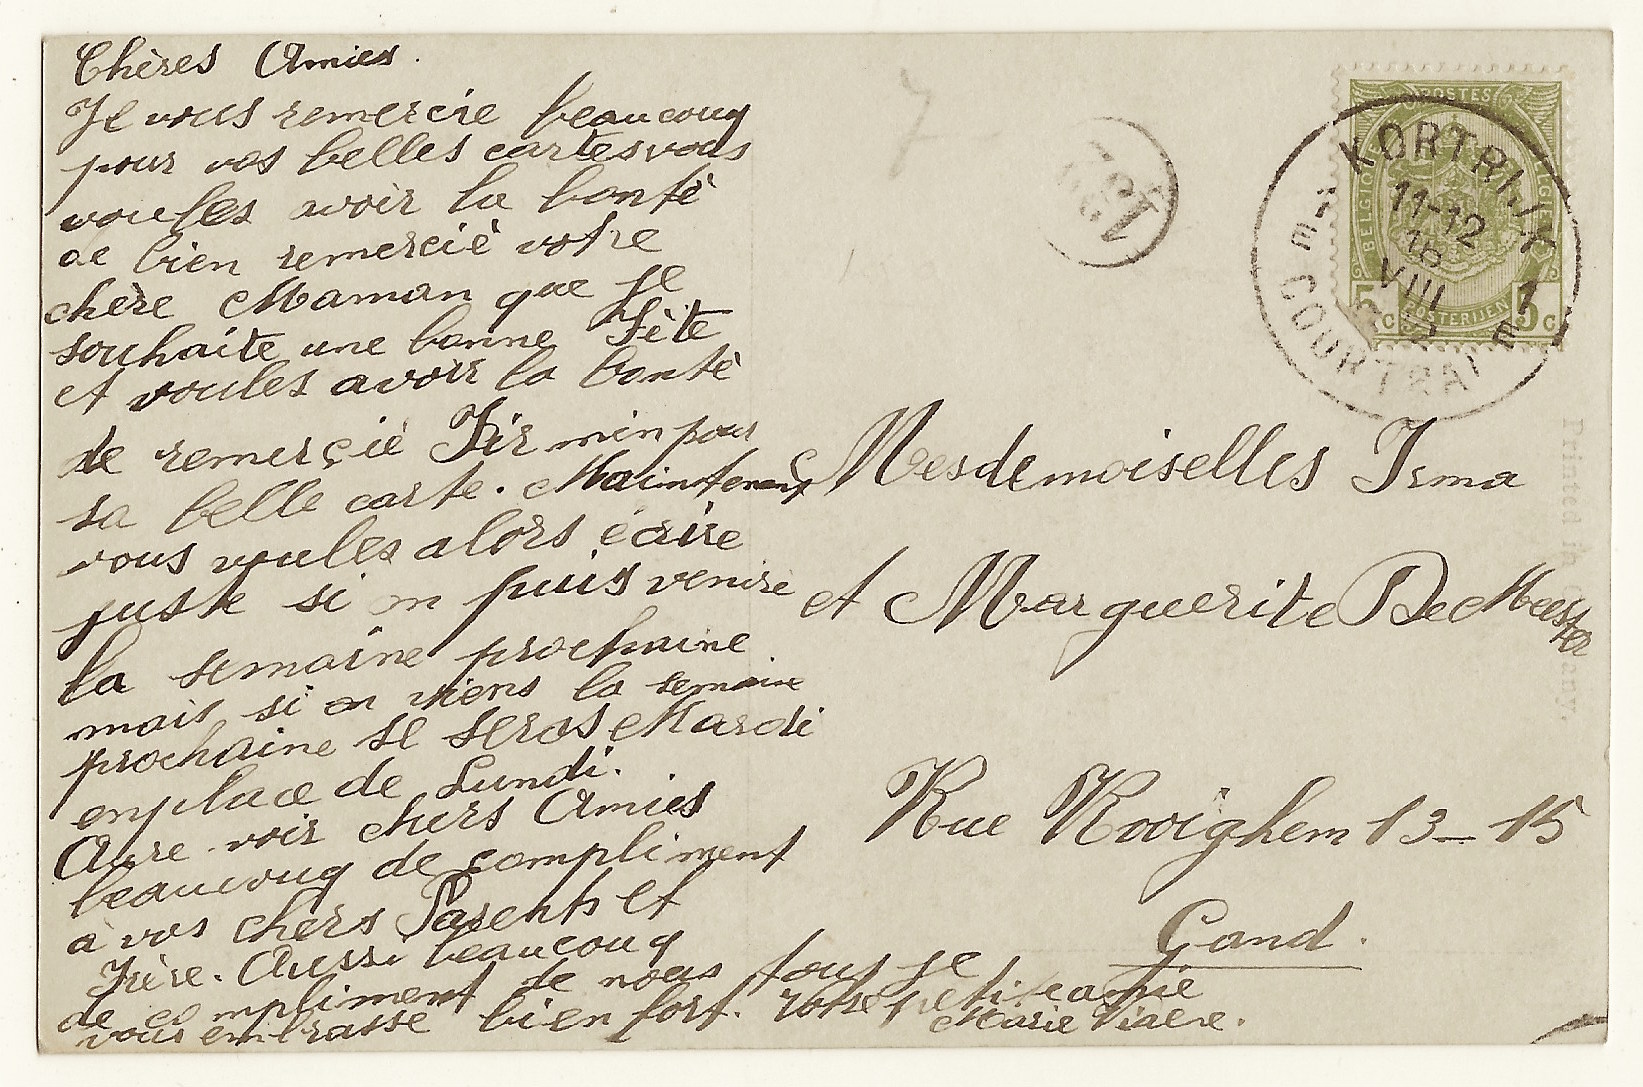 Chères Amies.
Je vous remercie beaucoug
pour vos belles cartes vous
voules avoir la bontè
de bien remerciè votre
chère Maman que je
souhaite une bonne Fête
et voules avoir la bontè
de remerçiè Firmin pour
sa belle carte. Maintenant
vous voules alors écrire
juste si on puis venire
la semaine prochaine
mais si on viens la semaine
prochaine se seras Mardi
enplace de Lundi.
Aure voir chers Amies
beaucoug de compliment
à vos chers Parents et
Frère. Aussi beaucoug
de compliment de nous tous je
vous embrasse bien fort. votre petite amie
Marie Viaene.
POSTES
BELGIQUE BELGIË
5c 5c
POSTERIJEN
KORTRIJK 1
11-12
16
VIII
COURTRAI
Mesdemoiselles Irma
et Marguerite De Meester
Rue Rooighem 13-15
Gand.
Printed in